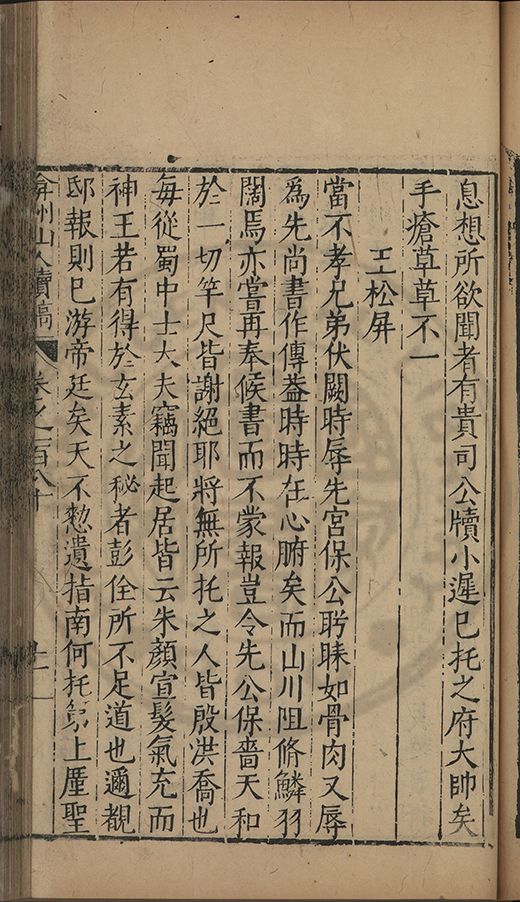 息想所欲聞者有貴司公牘小遲已托之府大帥矣
手瘡草草不一
王松屏
當不孝兄弟伏闕時辱先宮保公眄睞如骨肉又辱
為先尚書作傳益時時在心腑矣而山川阻脩鱗羽
闊焉亦嘗再奉候書而不蒙報豈令先公保嗇天和
於一切竿尺皆謝絕耶將無所托之人皆殷洪喬也
每從蜀中士大夫竊聞起居皆云朱顏宣髮氣充而
神王若有得於玄素之秘者彭佺所不足道也邇覩
邸報則已游帝廷矣天不憖遺指南何托芻上厪聖
弇州山人續稿 卷之一百八十 十一